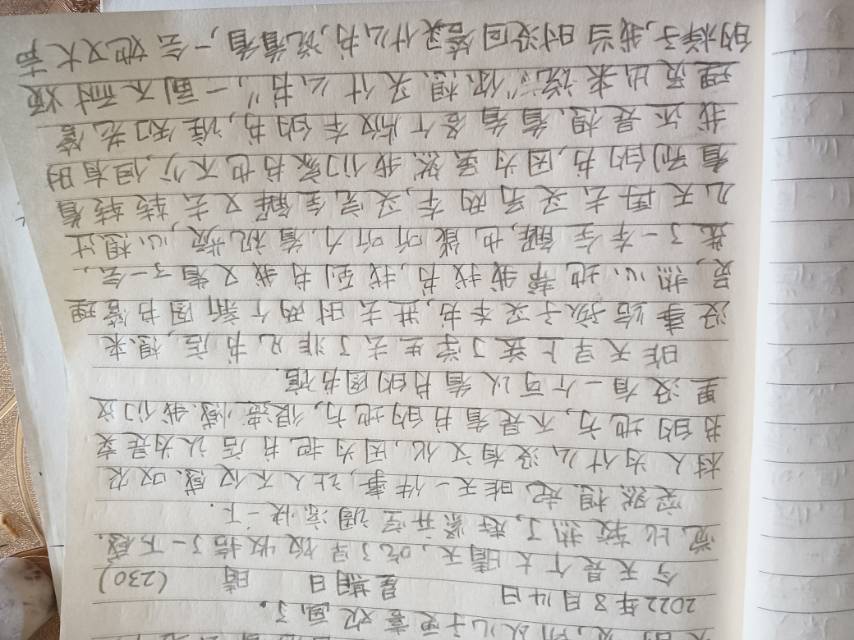 所以儿子更喜欢画了。
2022年8月14日 星期日 晴 (230)
今天是个大晴天,吃了早饭收拾了一下,感
觉比较热了,赶紧开空调凉快一下.
突然想起昨天一件事,让人不仅感叹农
村人为什么没有文化,因为把书店认为是卖
书的地方,不是看书的地方,很遗憾.我们这
里没有一个可以看书的图书馆.
昨天早上送了学生去了非凡书店,想来
没事给孩子买本书,进去时两个新图书管理
员,热心地帮我找书,找到书我又看了一会,
选了一本全解,也能听听力,看视频,心想过
几天再去买另两本,买完全解又去转转看
看别的书,因为虽然我们家书也不少,但有时
我还是想看看各个版本的书,谁知老管
理员出来说:"你想买什么书",一副不耐烦
的样子,我当时没回答买什么书,说看看,一会她又大声